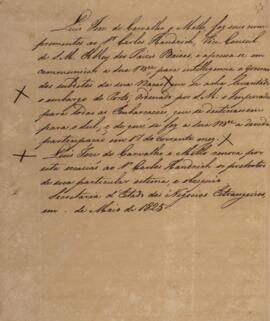 Luis Joze de Carvalho e Mello, faz seus cum-
primentos ao Sr. Carlos Handrich, Vice Consul
de S. M. El Rey dos Paizes Baixos, e apressa-se em
communicar a sua Mce para intelligencia e governo
dos subditos de sua Nação, que se acha levantado
o embargo do Porto, Ordenado por S. M. o Imperador
para todas as Embarcações, que se destinarem
para o Sul, de que se fez a sua Mce a devida
participação em 17 do corrente mez.
Luis Joze de Carvalho e Mello renova por
esta occasião ao Sr. Carlos Handrich os protestos
de sua particular estima e obsequio
Secretaria d'Estado dos Negocios Estrangeiros,
em de Maio de 1825